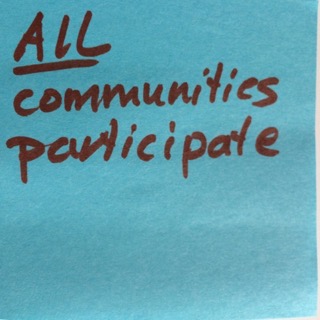 All
communities
participate